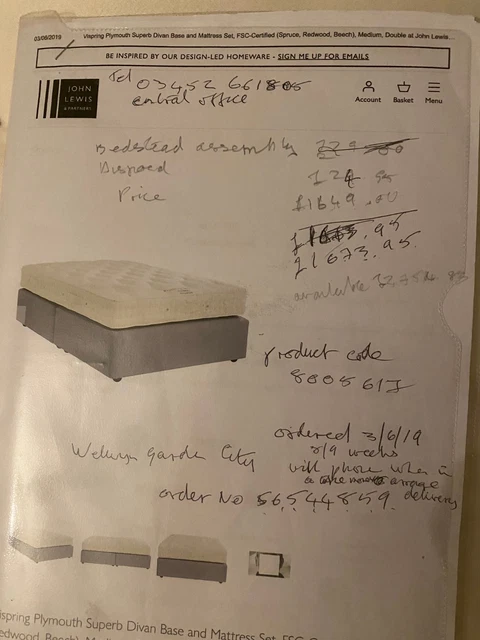 03/06/2019 Vispring Plymouth Superb Divan Base and Mattress Set, FSC-Certified (Spruce, Redwood, Beech), Medium, Double at John Lewis...
BE INSPIRED BY OUR DESIGN-LED HOMEWARE - SIGN ME UP FOR EMAILS
Tel 03452 661805
central office
JOHN
LEWIS
& PARTNERS
Account Basket Menu
Bedstead assembly
Disposal £24.95
Price £1649.00
£1673.95
available
product code
ordered 3/6/19
8/9 weeks
Welwyn Garden City will phone when in
arrange
order No 56544859 delivery
Vispring Plymouth Superb Divan Base and Mattress Set, FSC-C